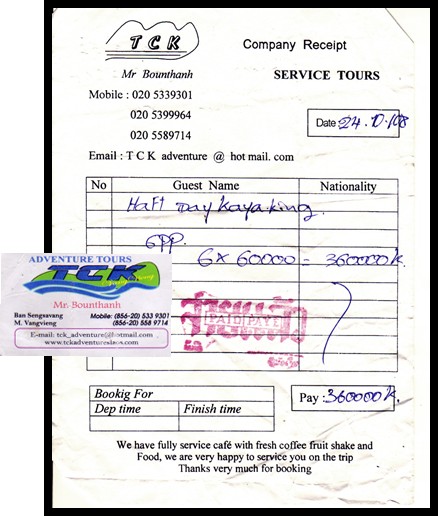 TCK
Company Receipt
Mr Bounthanh
SERVICE TOURS
Mobile : 020 5339301
020 5399964
020 5589714
Date 24.10/08
Email : T C K adventure @ hot mail. com
No Guest Name Nationality
Haft Day kayaking.
6pp.
6 x 60000 = 360000 k.
PAID PAYE
ADVENTURE TOURS
TCK
Mr. Bounthanh
Ban Sengsavang Mobile: (856-20) 533 9301
M. Vangvieng (856-20) 558 9714
E-mail: tck_adventure@hotmail.com
www.tckadventureslaos.com
Bookig For
Dep time Finish time
Pay : 360000 k.
We have fully service café with fresh coffee fruit shake and
Food, we are very happy to service you on the trip
Thanks very much for booking